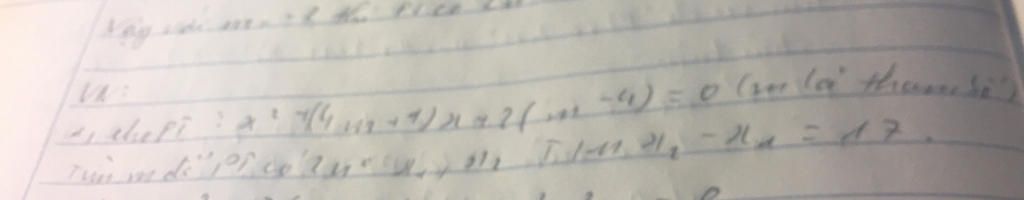 Vậy với m = 2 thì PT có
VD:
a, cho PT : x² + (4m+1)x + 2(m-4) = 0 (m là tham số)
Tìm m để PT có 2 n° x₁, x₂ T/m x₂ - x₁ = 17.